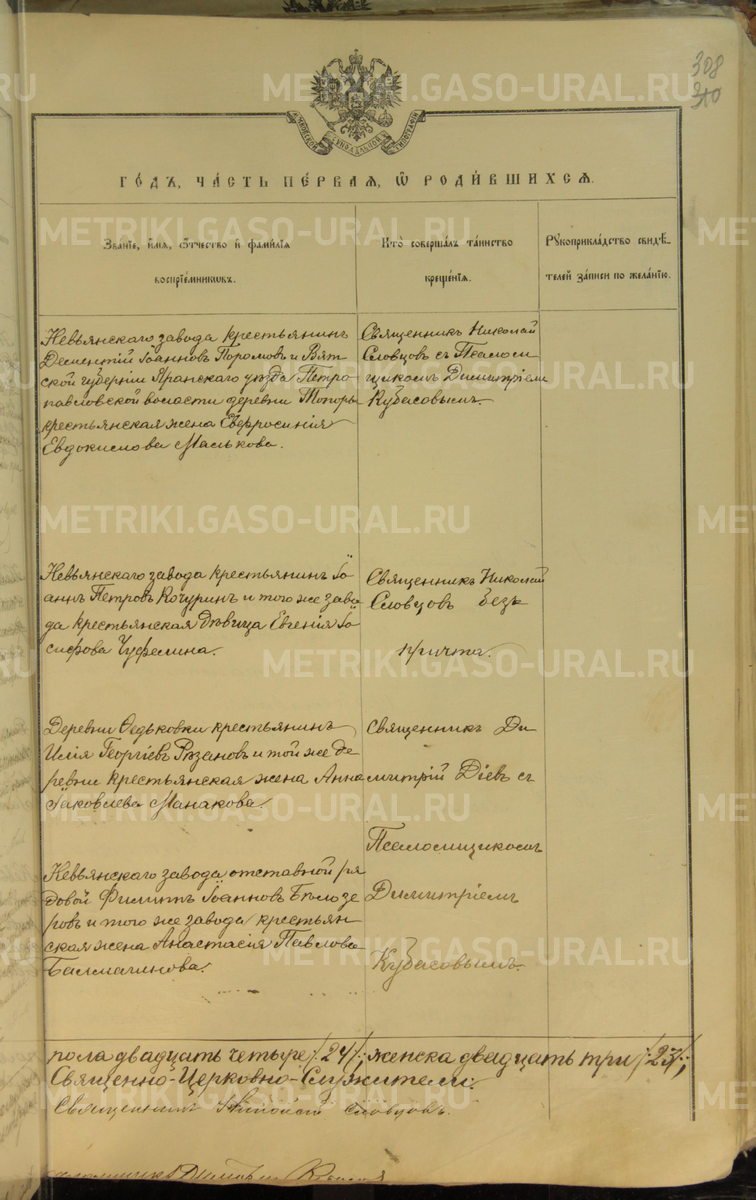 308
310
METRIKI.GASO-URAL.RU
МОСКОВСКОЙ СѴНОДАЛЬНОЙ ТИПОГРАФІИ
ГО́ДЪ, ЧА́СТЬ ПЕ́РВАЯ, Ѡ҆ РОДИ́ВШИХСЯ.
Зва́нїе, и҆́мѧ, ѻ҆́тчество и҆ фами́лїѧ
воспрїе́мниковъ.
Кто̀ соверша́лъ та́инство
креще́нїѧ.
Рꙋкоприкла́дство свидѣ́-
телей за́писи по жела́нїю.
Невьянскаго завода крестьянинъ
Дементій Іоанновъ Поромовъ и Вят
ской губерніи Яранскаго уѣзда Петро
павловской волости деревни Топоры
крестьянская жена Евфросинія
Евдокимова Маслькова.
Священникъ Николай
Словцовъ съ Псаломи
щикомъ Димитріемъ
Кубасовымъ.
Невьянскаго завода крестьянинъ Іо
аннъ Петровъ Кочуринъ и того же заво
да крестьянская дѣвица Евгенія Іо
сифова Чуфелина.
Священникъ Николай
Словцовъ безъ
причта.
Деревни Федьковки крестьянинъ
Илія Георгіевъ Рязановъ и той же де
ревни крестьянская жена Анна
Іаковлева Манакова.
Священникъ Ди
митрій Діевъ съ
Псаломщикомъ
Димитріемъ
Кубасовымъ.
Невьянскаго завода отставной ря
довой Филиппъ Іоанновъ Бѣлозе
ровъ и того же завода крестьян
ская жена Анастасія Павлова
Балмашнова.
пола двадцать четыре /24/; женска двадцать три /23/;
Священно-Церковно-Служители:
Священникъ Николай Словцовъ.